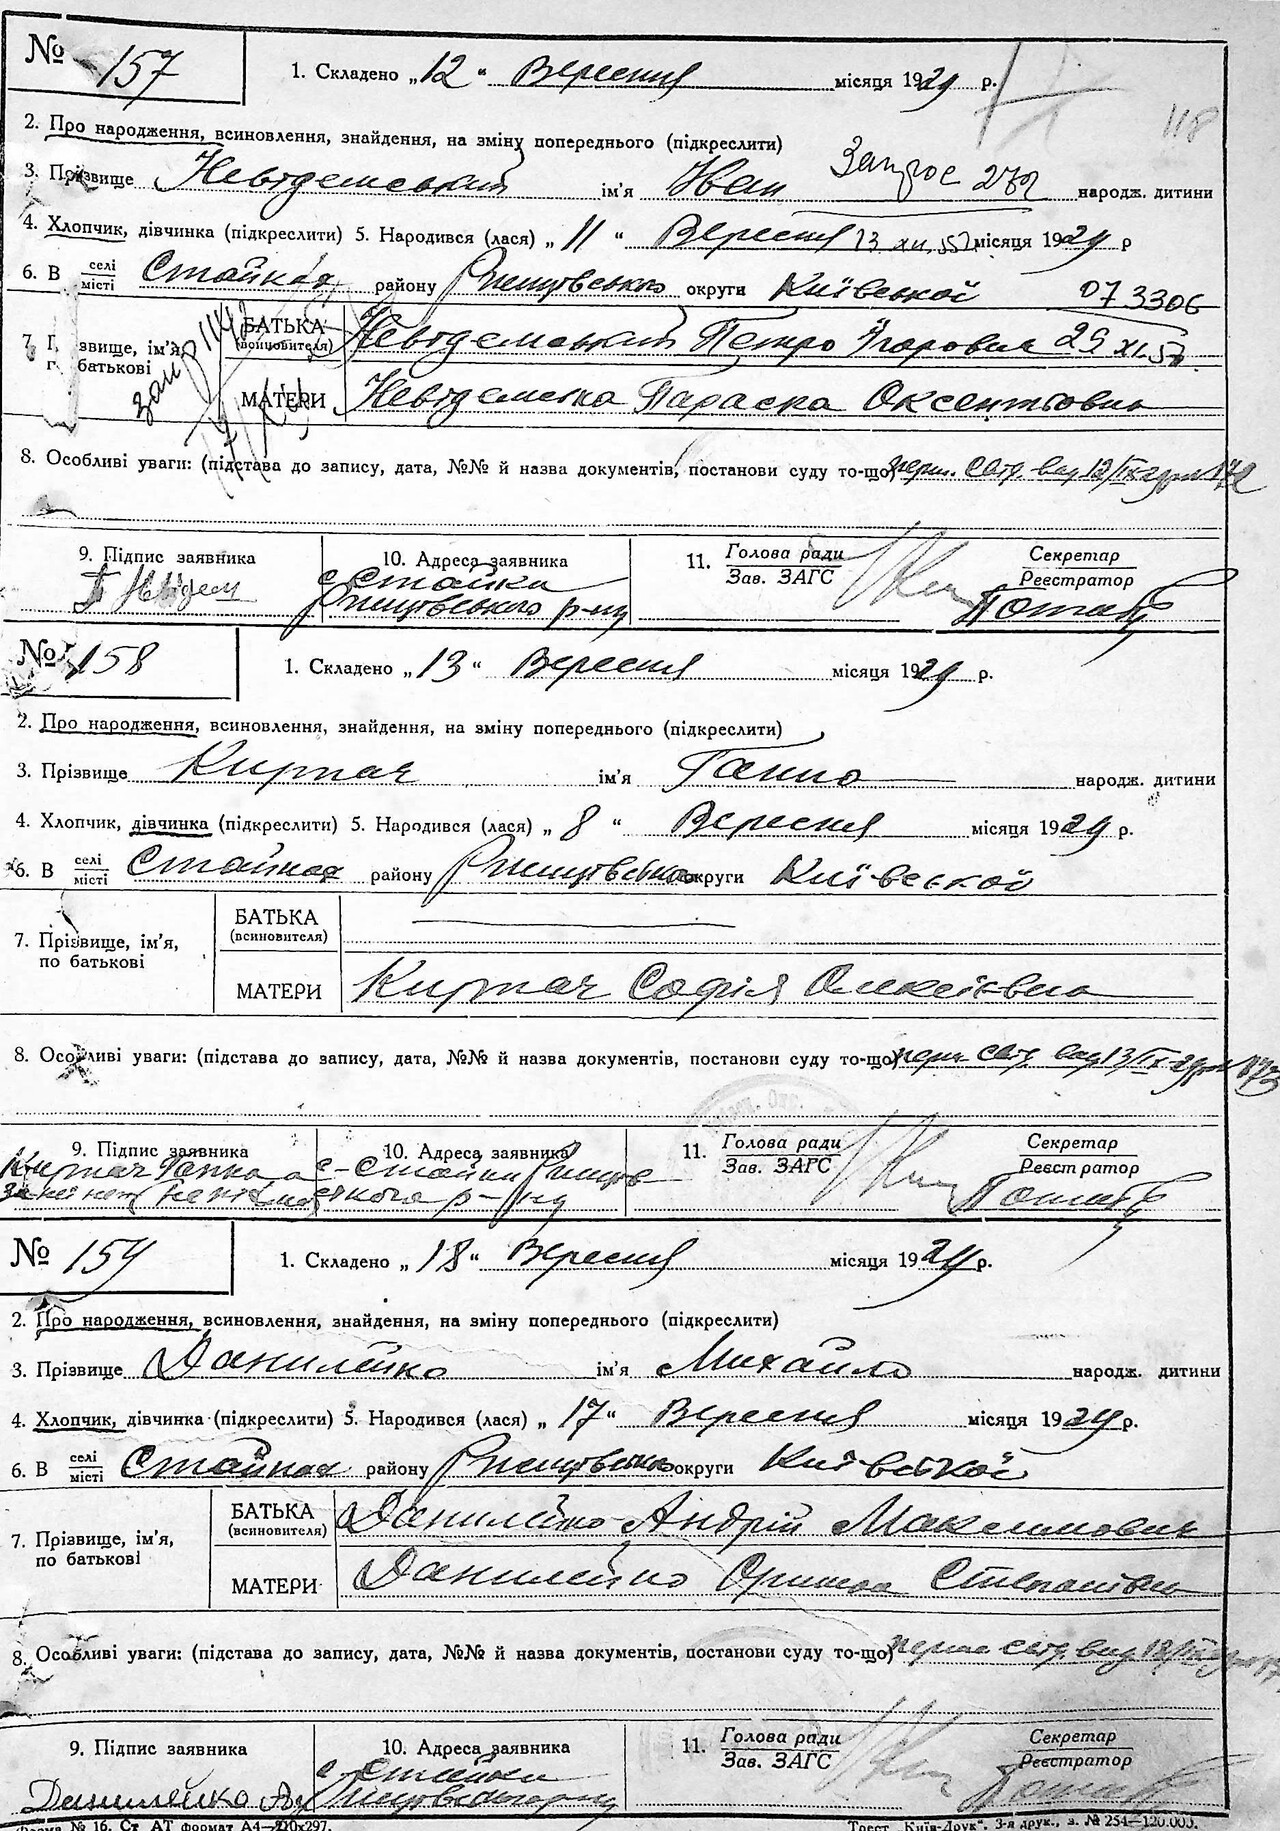 № 157 1. Складено „12“ Вересня місяця 1929 р.
118
2. Про народження, всиновлення, знайдення, на зміну попереднього (підкреслити)
3. Прізвище Невідемський ім'я Іван народж. дитини
4. Хлопчик, дівчинка (підкреслити) 5. Народився (лася) „11“ Вересня місяця 1929 р
13 XII 57
6. В селі/місті Стайках району Ржищівського округи Київської
073306
7. Прізвище, ім'я, по батькові
БАТЬКА (всиновителя) Невідемський Петро 25 XI 57
МАТЕРИ Невідемська Параска Оксентіовна
8. Особливі уваги: (підстава до запису, дата, №№ й назва документів, постанови суду то-що) перш. свід. вид 12/IX-29р
9. Підпис заявника 10. Адреса заявника 11. Голова ради Секретар
Зав. ЗАГС Реєстратор
с Стайки
Ржищівського р-ну
№ 158 1. Складено „13“ Вересня місяця 1929 р.
2. Про народження, всиновлення, знайдення, на зміну попереднього (підкреслити)
3. Прізвище Кирпач ім'я Ганна народж. дитини
4. Хлопчик, дівчинка (підкреслити) 5. Народився (лася) „8“ Вересня місяця 1929 р.
6. В селі/місті Стайках району Ржищівського округи Київської
7. Прізвище, ім'я, по батькові
БАТЬКА (всиновителя)
МАТЕРИ Кирпач Софія Олексіївна
8. Особливі уваги: (підстава до запису, дата, №№ й назва документів, постанови суду то-що) перш. свід. вид 13/IX-29р
9. Підпис заявника 10. Адреса заявника 11. Голова ради Секретар
Зав. ЗАГС Реєстратор
Кирпач Ганна а с-Стайки Ржищів
ського р-ну
№ 159 1. Складено „18“ Вересня місяця 1929 р.
2. Про народження, всиновлення, знайдення, на зміну попереднього (підкреслити)
3. Прізвище Данилейко ім'я Михайло народж. дитини
4. Хлопчик, дівчинка (підкреслити) 5. Народився (лася) „17“ Вересня місяця 1929 р.
6. В селі/місті Стайках району Ржищівського округи Київської
7. Прізвище, ім'я, по батькові
БАТЬКА (всиновителя) Данилейко Андрій Максимович
МАТЕРИ Данилейко Оришка Степанівна
8. Особливі уваги: (підстава до запису, дата, №№ й назва документів, постанови суду то-що) перш. свід. вид 18/IX
9. Підпис заявника 10. Адреса заявника 11. Голова ради Секретар
Зав. ЗАГС Реєстратор
с Стайки
Данилейко
Форма № 16. Ст. АТ формат А4—210x297. Трест „Київ-Друк“. 3-я друк., з. № 254—120.000.